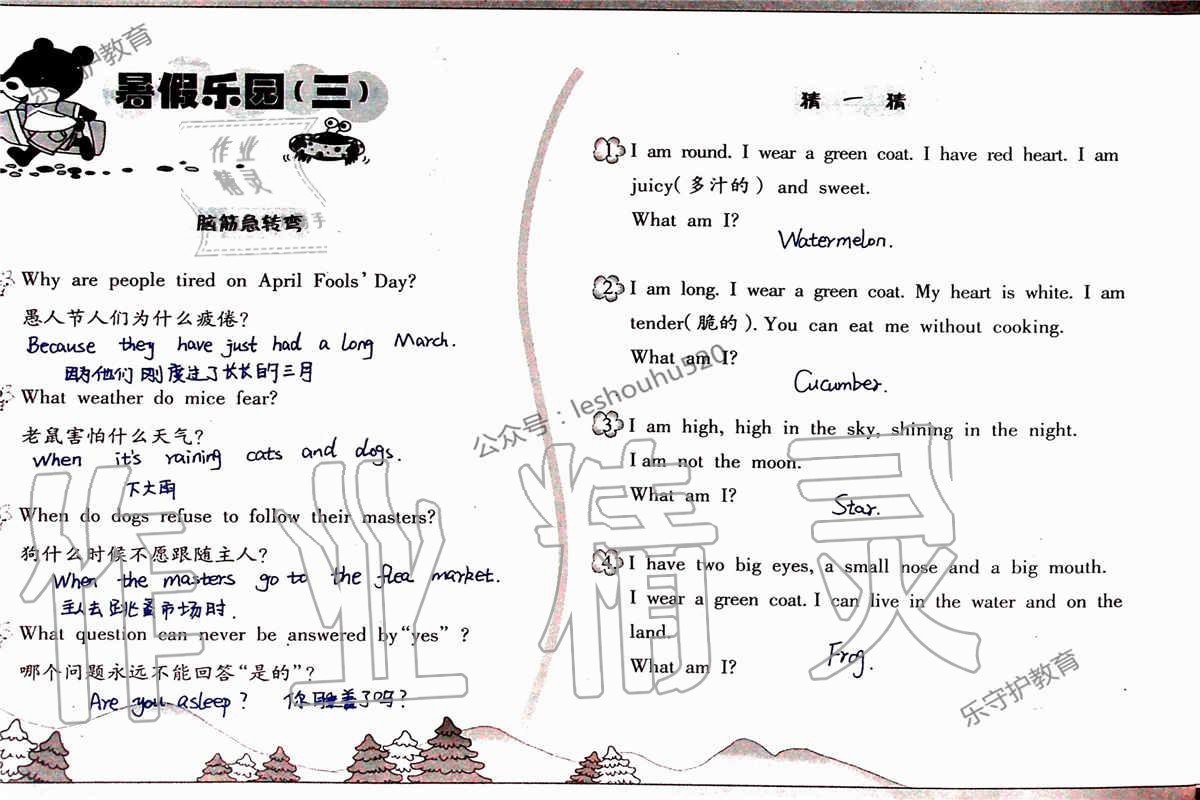 暑假乐园(三)
脑筋急转弯
Why are people tired on April Fools' Day?
愚人节人们为什么疲倦?
Because they have just had a long March.
因为他们刚度过了长长的三月
What weather do mice fear?
老鼠害怕什么天气?
When it's raining cats and dogs.
下大雨
When do dogs refuse to follow their masters?
狗什么时候不愿跟随主人?
When the masters go to the flea market.
主人去跳蚤市场时.
What question can never be answered by "yes" ?
哪个问题永远不能回答"是的"?
Are you asleep? 你睡着了吗?
猜一猜
1 I am round. I wear a green coat. I have red heart. I am
juicy(多汁的) and sweet.
What am I?
Watermelon.
2 I am long. I wear a green coat. My heart is white. I am
tender(脆的). You can eat me without cooking.
What am I?
Cucumber.
3 I am high, high in the sky, shining in the night.
I am not the moon.
What am I?
Star.
4 I have two big eyes, a small nose and a big mouth.
I wear a green coat. I can live in the water and on the
land.
What am I?
Frog.
乐守护教育
作业
精灵
手
公众号:leshouhu520
作业精灵
乐守护教育